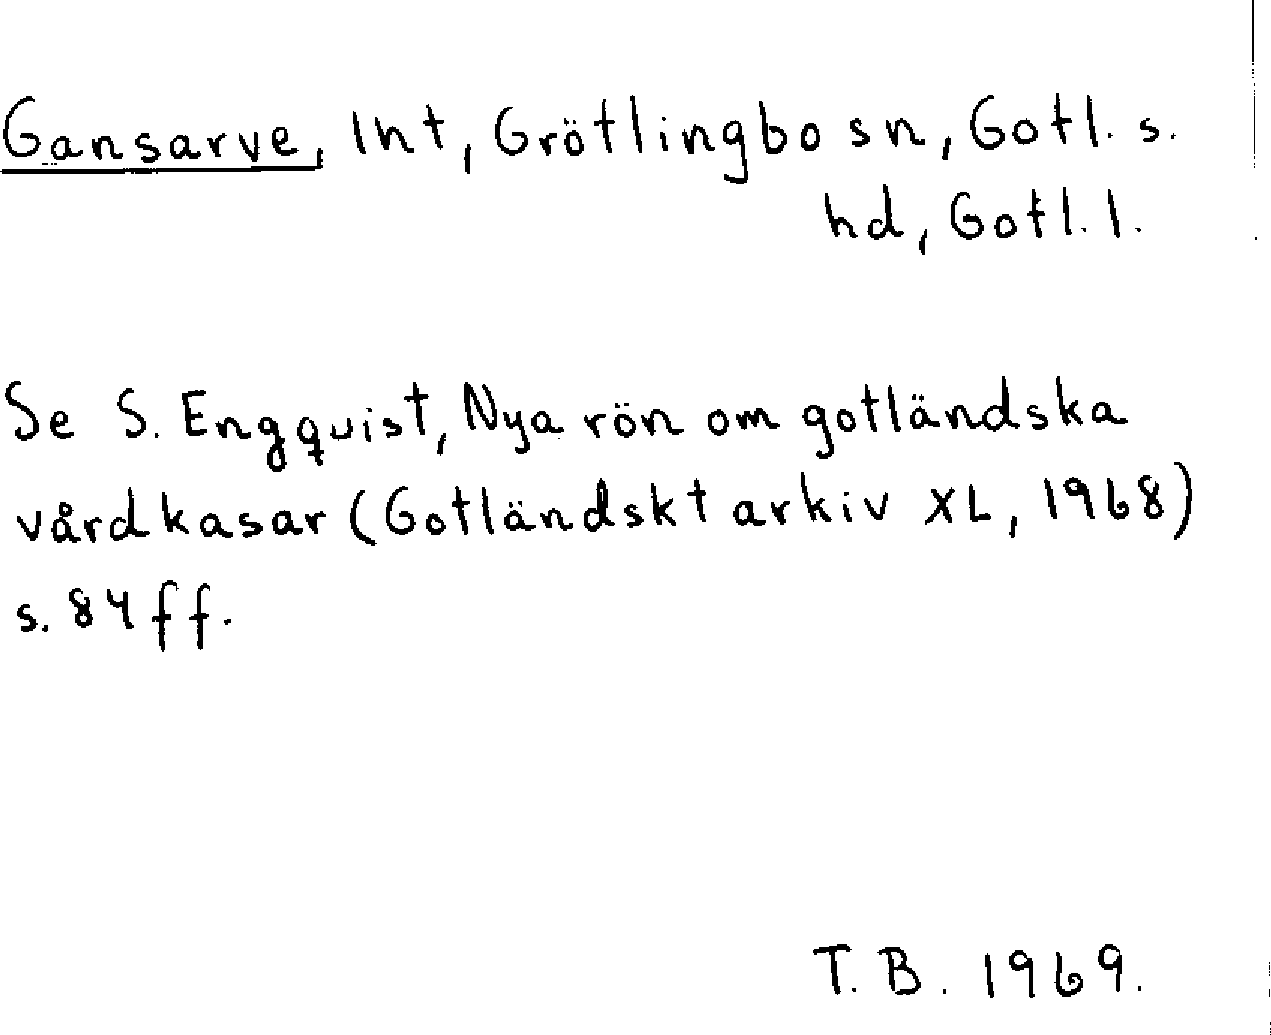 Gansarve, Int, Grötlingbo sn, Gotl. s.
hd, Gotl. l.
Se S. Engquist, Nya rön om gotländska
vårdkasar (Gotländskt arkiv XL, 1968)
s. 84 ff.
T. B. 1969.